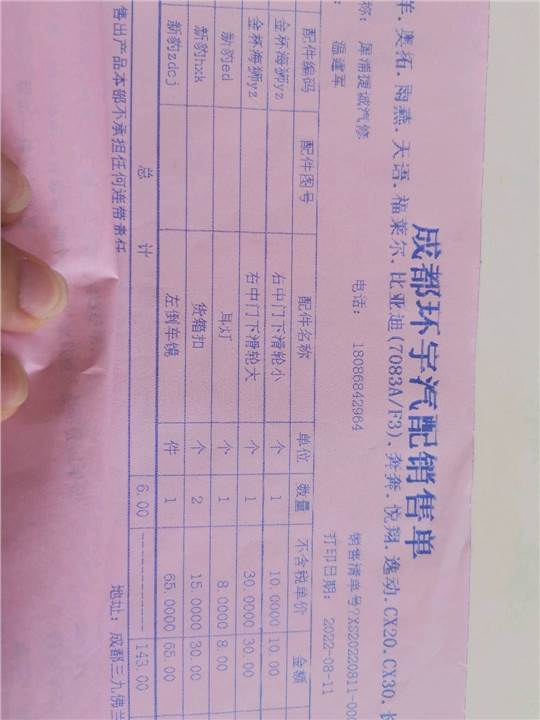 成都环宇汽配销售单
羊.奥拓.雨燕.天语.福莱尔.比亚迪(7083A/F3).奔奔.悦翔.逸动.CX20.CX30.长
称: 犀浦捷诚汽修 电话: 18086842964 销售清单号?XS20220811-000
温建军 打印日期: 2022-08-11
配件编码 配件图号 配件名称 单位 数量 不含税单价 金额
金杯海狮yz 右中门下滑轮小 个 1 10.0000 10.00
金杯海狮yz 右中门下滑轮大 个 1 30.0000 30.00
新豹ed 耳灯 个 1 8.0000 8.00
新豹hxk 货箱扣 个 2 15.0000 30.00
新豹zdcj 左倒车镜 件 1 65.0000 65.00
总 计 6.00 ------------ 143.00
售出产品本部不承担任何连带责任 地址: 成都三九佛兰